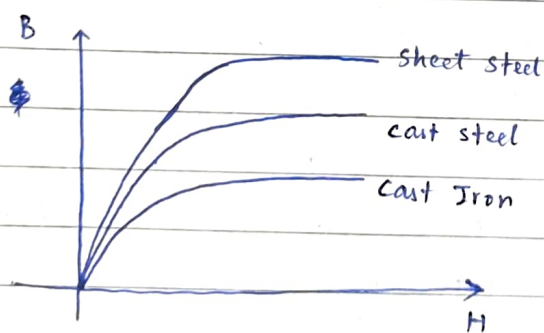 B
Sheet Steel
Cast steel
Cast Iron
H